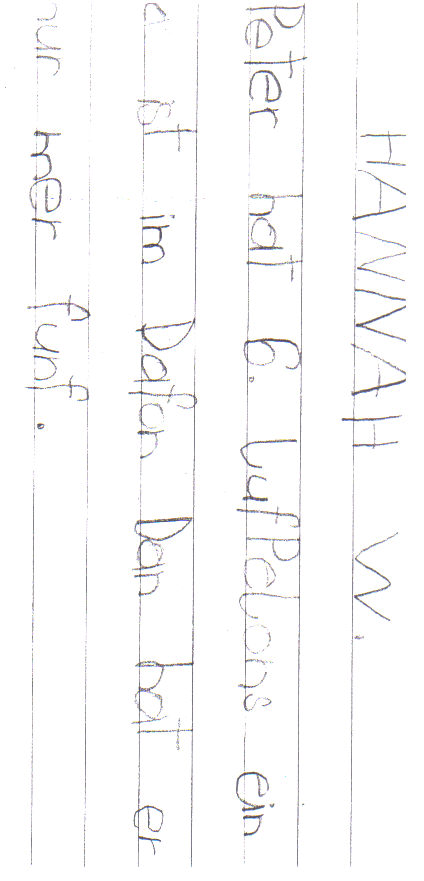 HANNAH W.
Peter hat 6. LufPelons ein
a ist im Dafon Dan hat er
nur mer funf.